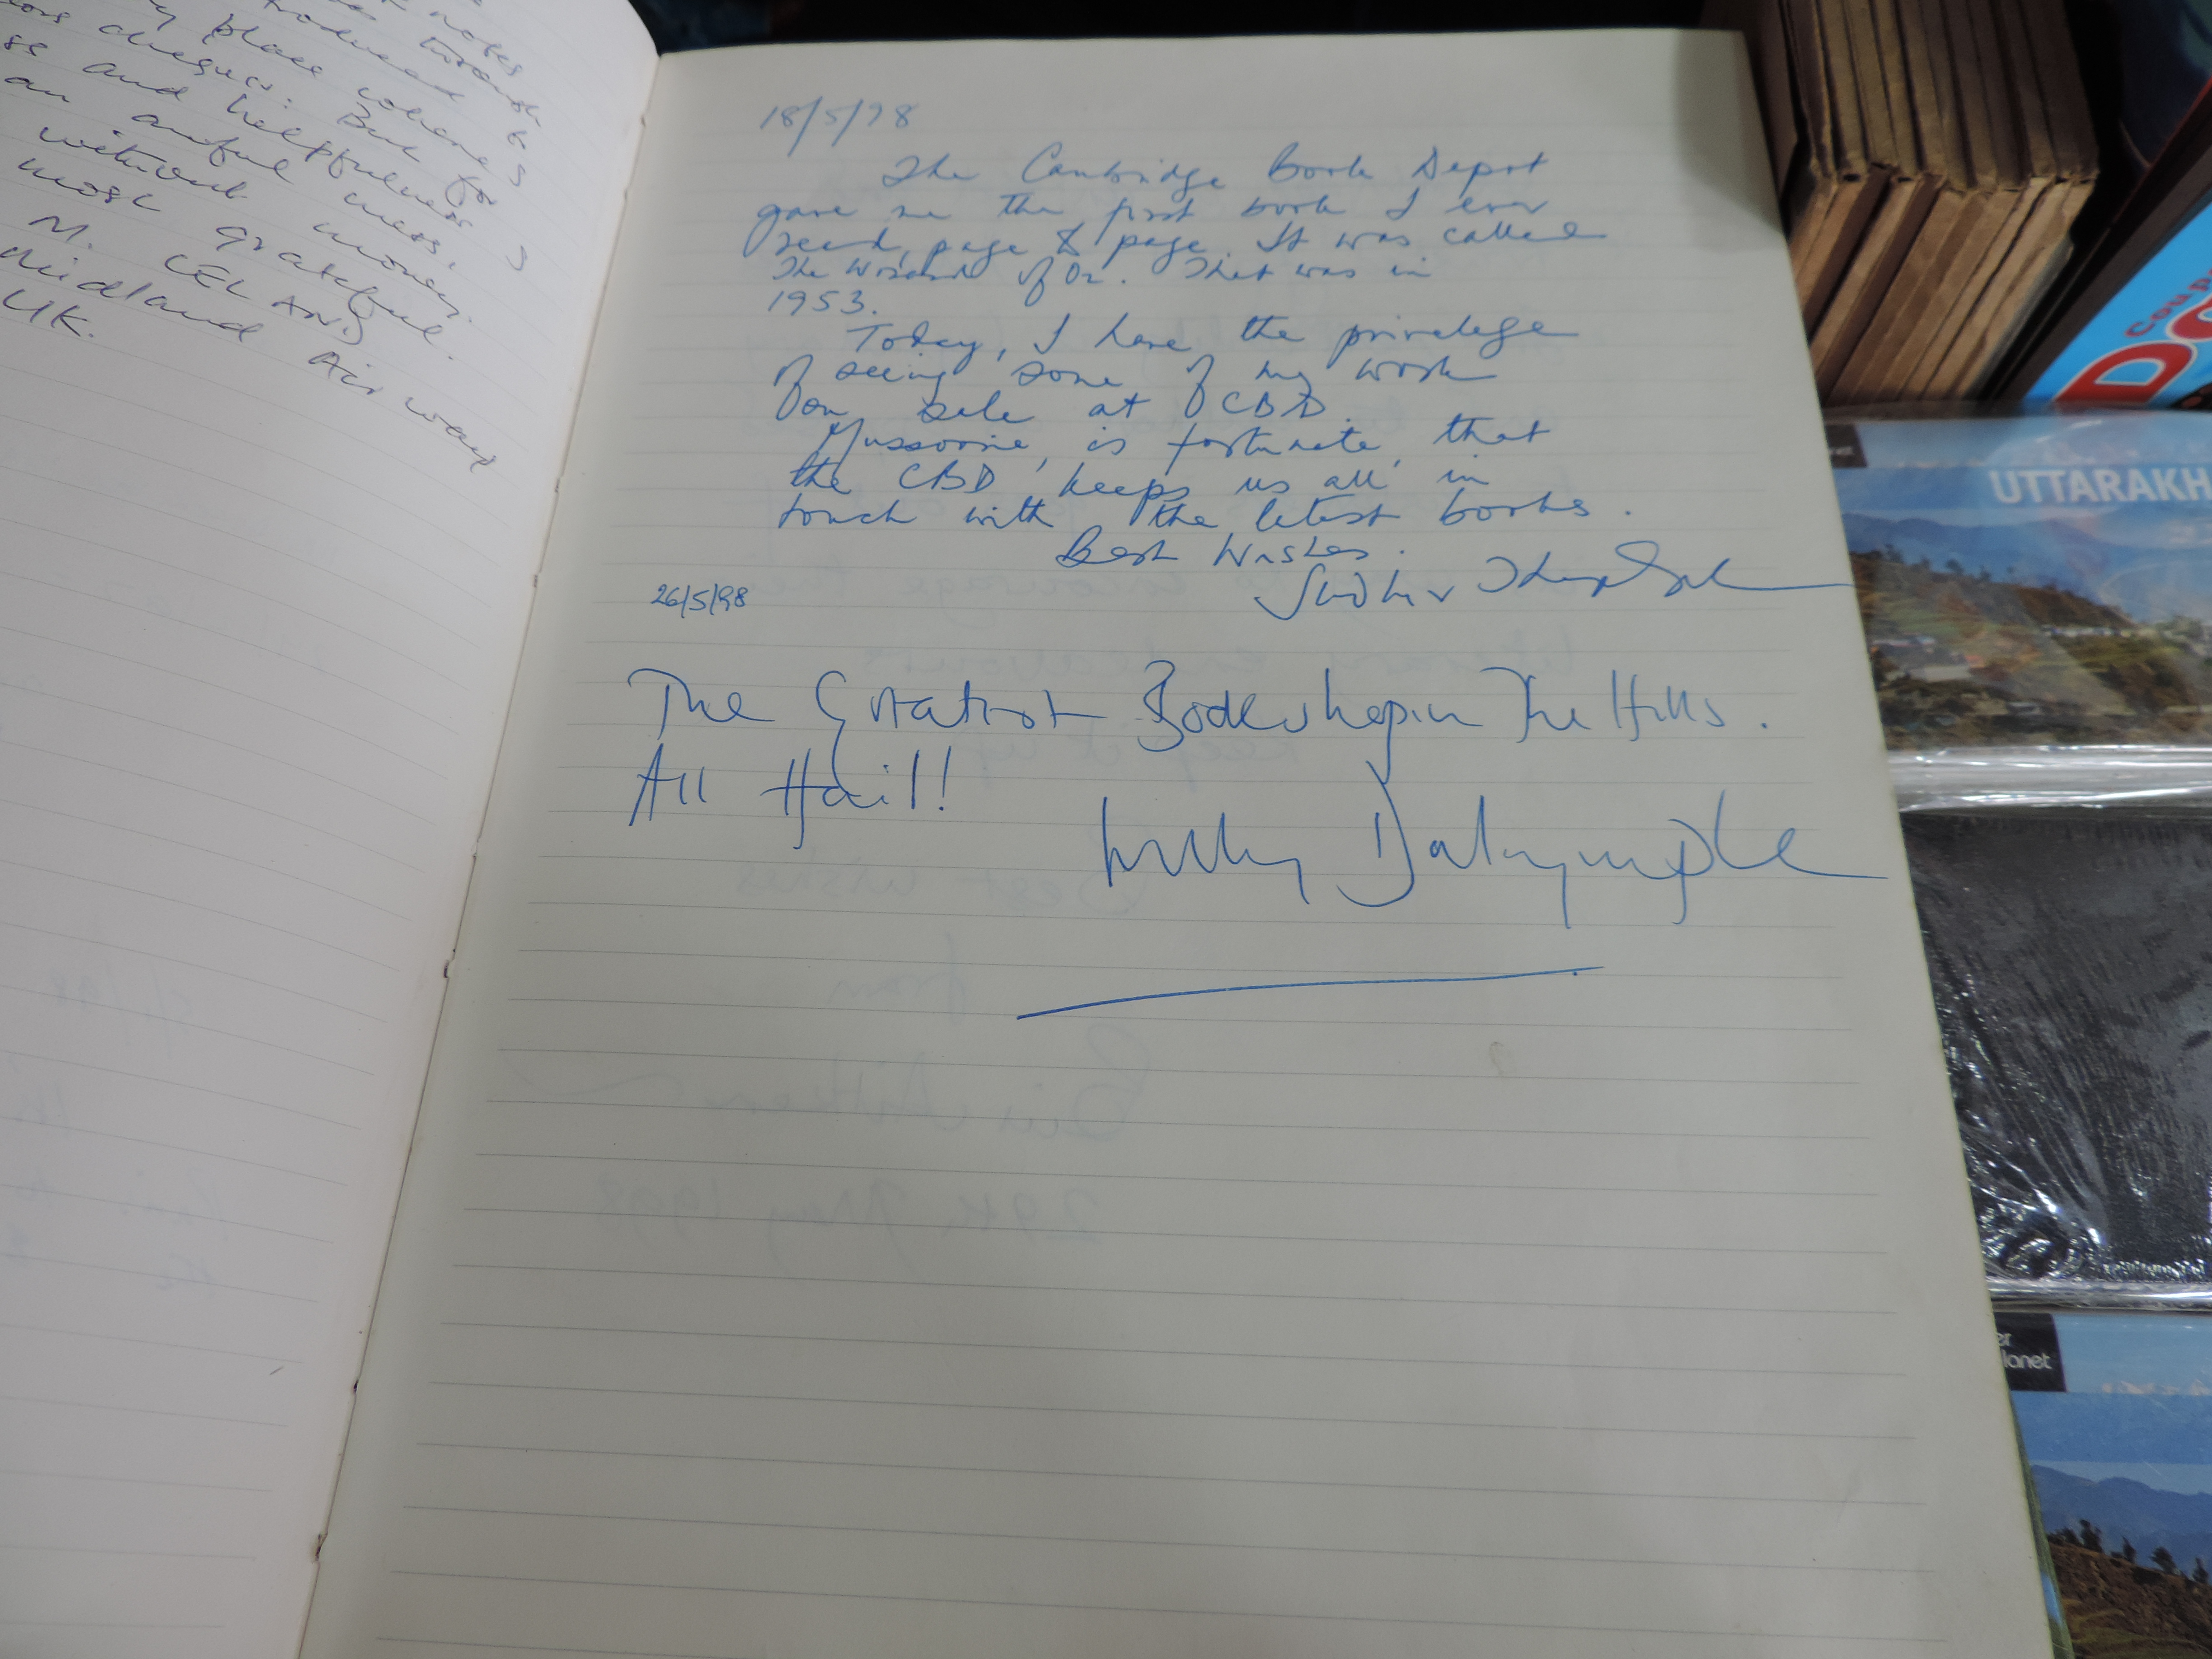 notes
towards
place where
cheques. But for
se and helpfulness
an awful mess,
without money.
most grateful.
M.
Midland Air ways
UK.
18/5/98
The Cambridge Book Depot
gave me the first book I ever
read, page to page. It was called
The Wizard of Oz. That was in
1953.
Today, I have the privelege
of seeing some of my work
on sale at CBD.
Mussoorie, is fortunate, that
the CBD keeps us all in
touch with the latest books.
Best Wishes.
Sudhir
26/5/98
The Greatest Bookshop in The Hills.
All Hail!
Willy Dalrymple
UTTARAKH
lanet